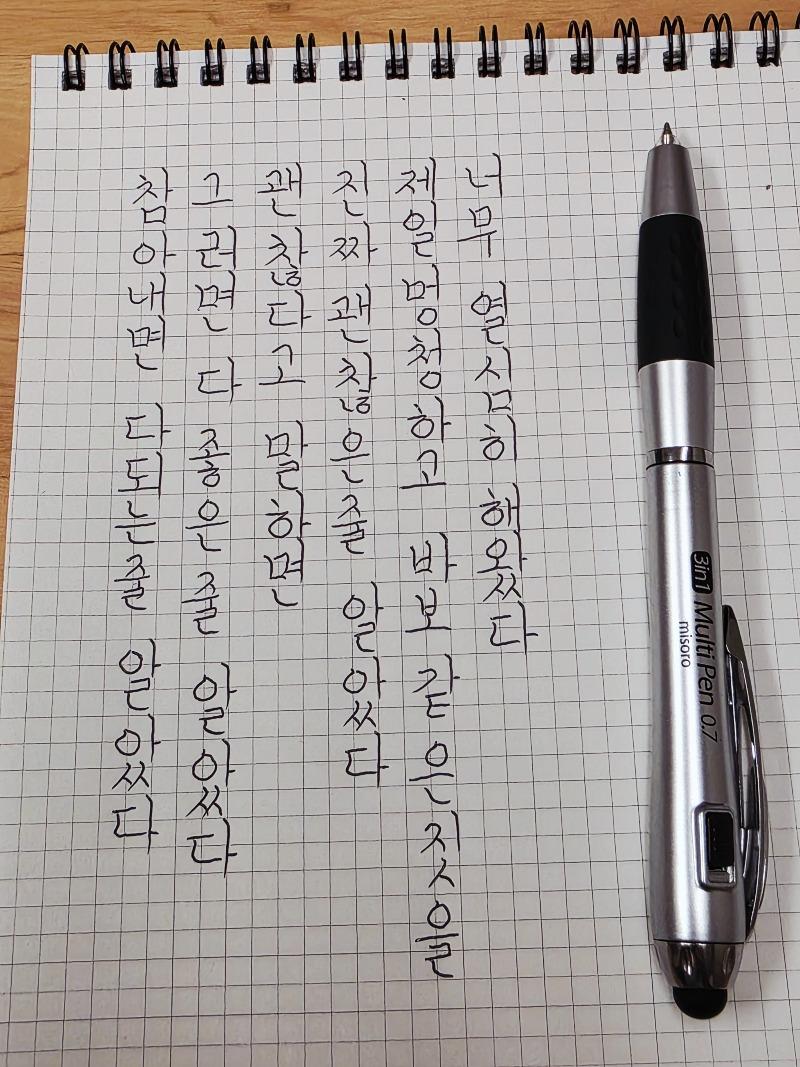 너무 열심히 해왔다
제일 멍청하고 바보 같은 짓을
진짜 괜찮은줄 알았다
괜찮다고 말하면
그러면 다 좋은 줄 알았다
참아내면 다 되는줄 알았다
3in1 Multi Pen 0.7
misoro